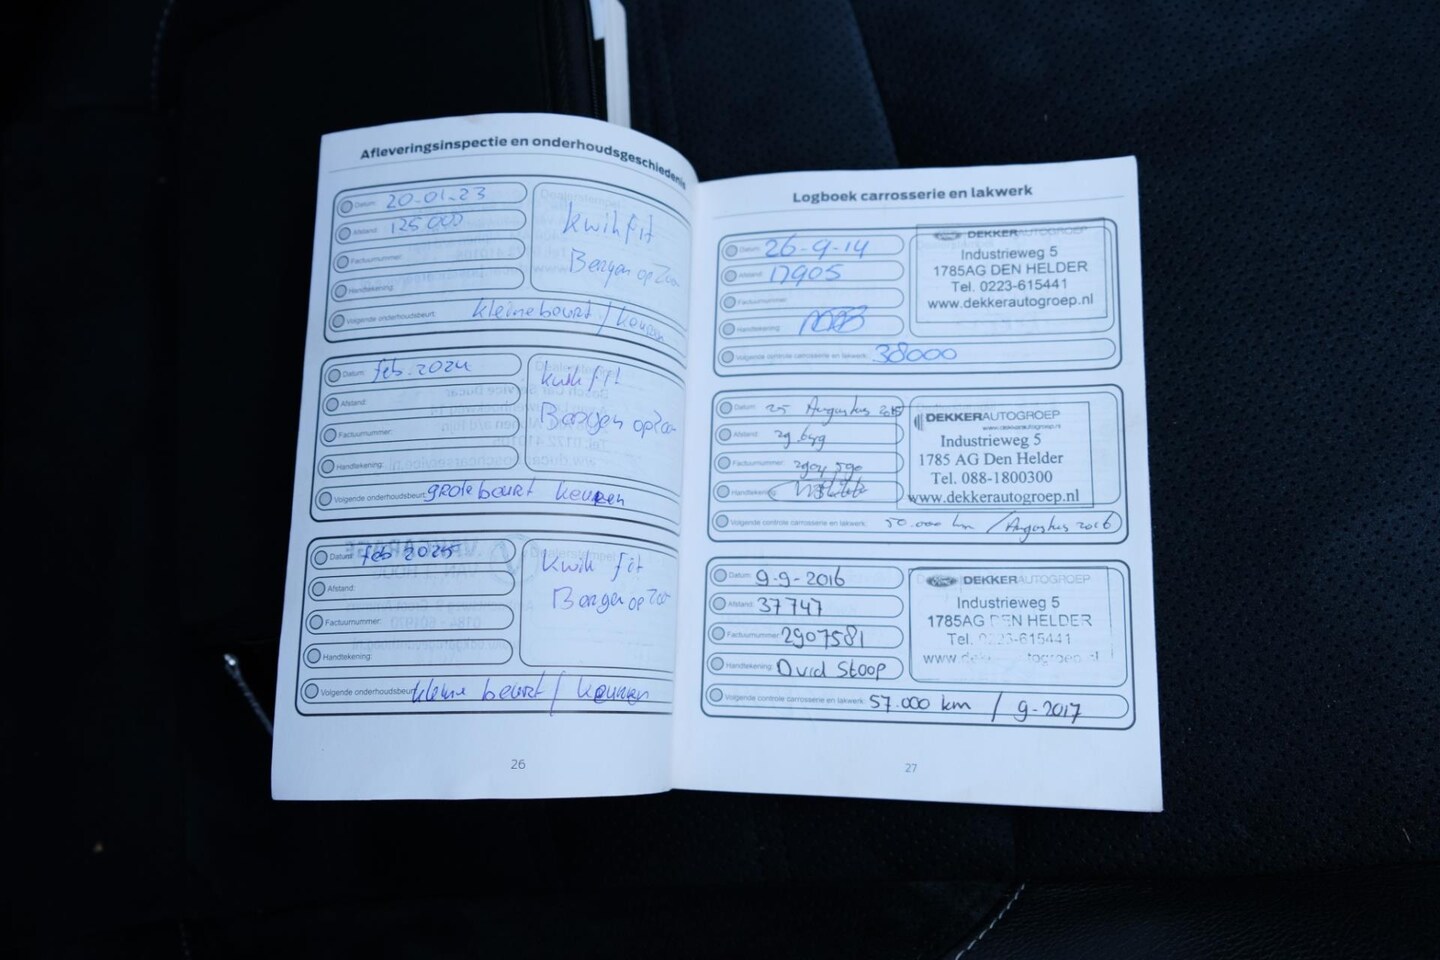 Afleveringsinspectie en onderhoudsgeschiedenis
Datum: 20-01-23
Afstand: 125 000
Factuurnummer:
Handtekening:
Volgende onderhoudsbeurt: kleine beurt / keuren
kwik fit
Bergen op Zoom
Datum: feb. 2024
Afstand:
Factuurnummer:
Handtekening:
Volgende onderhoudsbeurt: grote beurt keuren
kwik fit
Bergen op Zoom
Datum: feb 2025
Afstand:
Factuurnummer:
Handtekening:
Volgende onderhoudsbeurt: kleine beurt / keuren
Kwik fit
Bergen op Zoom
26
Logboek carrosserie en lakwerk
Datum: 26-9-14
Afstand: 17905
Factuurnummer:
Handtekening:
Volgende controle carrosserie en lakwerk: 38000
DEKKERAUTOGROEP
Industrieweg 5
1785AG DEN HELDER
Tel. 0223-615441
www.dekkerautogroep.nl
Datum: 25 Augustus 2015
Afstand:
Factuurnummer:
Handtekening:
Volgende controle carrosserie en lakwerk: 50.000 km / Augustus 2016
DEKKERAUTOGROEP
www.dekkerautogroep.nl
Industrieweg 5
1785 AG Den Helder
Tel. 088-1800300
www.dekkerautogroep.nl
Datum: 9-9-2016
Afstand: 37747
Factuurnummer: 2907581
Handtekening: David Stoop
Volgende controle carrosserie en lakwerk: 57.000 km / 9-2017
DEKKERAUTOGROEP
Industrieweg 5
1785AG DEN HELDER
Tel. 0223-615441
27